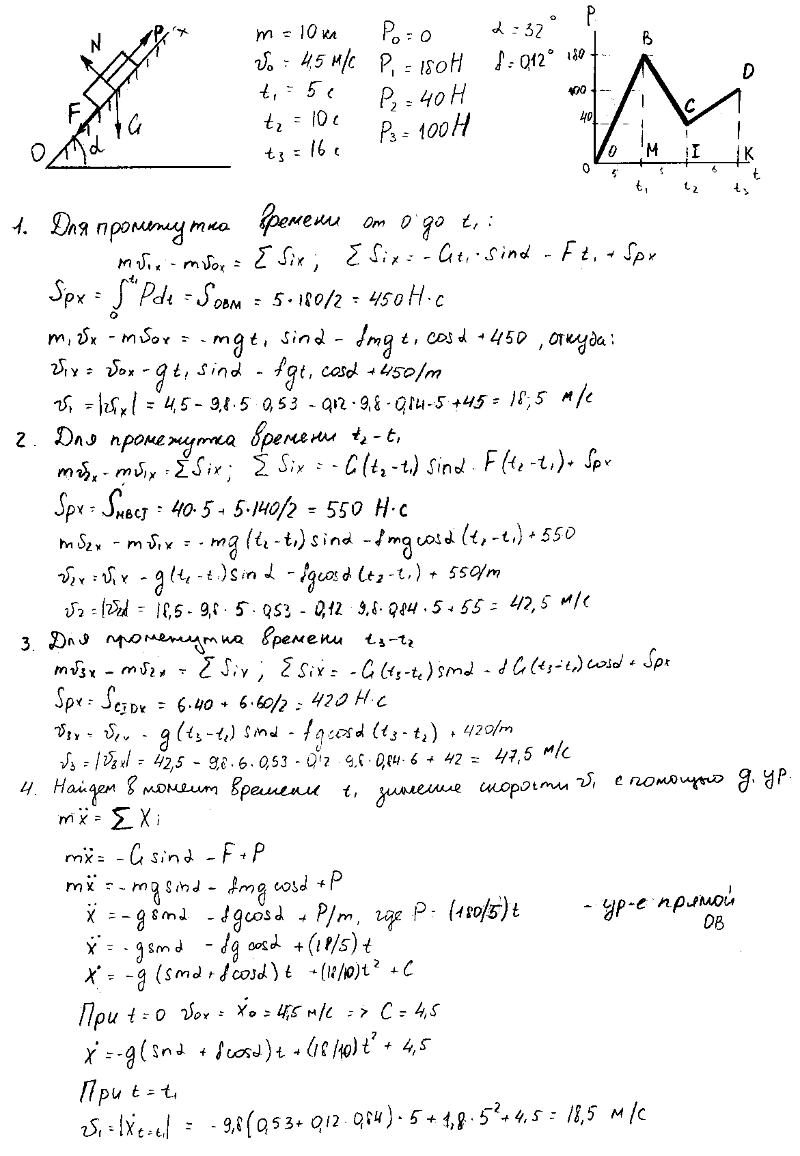 N P x
F G
O α
m = 10 кг P₀ = 0 α = 32°
v₀ = 4,5 м/с P₁ = 180Н f = 0,12°
t₁ = 5 с P₂ = 40 Н
t₂ = 10 с P₃ = 100 Н
t₃ = 16 с
P
B
180
D
100
C
40
O M I K
0 5 5 6 t
t₁ t₂ t₃
1. Для промежутка времени от 0 до t₁:
mv₁ₓ - mv₀ₓ = ∑ Sᵢₓ ; ∑ Sᵢₓ = -Gt₁·sinα - Ft₁ + Sₚₓ
Sₚₓ = ∫₀^t₁ Pdt = S_OBM = 5·180/2 = 450 Н·с
m₁vₓ - mv₀ₓ = -mgt₁ sinα - fmgt₁ cosα + 450 , откуда:
v₁ₓ = v₀ₓ - gt₁ sinα - fgt₁ cosα + 450/m
v₁ = |v₁ₓ| = 4,5 - 9,8·5 0,53 - 0,12·9,8·0,84·5 + 45 = 18,5 м/с
2. Для промежутка времени t₂ - t₁
mv₂ₓ - mv₁ₓ = ∑Sᵢₓ ; ∑ Sᵢₓ = -G(t₂-t₁) sinα - F(t₂-t₁) + Sₚₓ
Sₚₓ = S_MBCI = 40·5 + 5·140/2 = 550 Н·с
mv₂ₓ - mv₁ₓ = -mg(t₂-t₁)sinα - fmgcosα(t₂-t₁) + 550
v₂ₓ = v₁ₓ - g(t₂-t₁)sinα - fgcosα(t₂-t₁) + 550/m
v₂ = |v₂ₓ| = 18,5 - 9,8·5·0,53 - 0,12·9,8·0,84·5 + 55 = 42,5 м/с
3. Для промежутка времени t₃-t₂
mv₃ₓ - mv₂ₓ = ∑ Sᵢₓ ; ∑Sᵢₓ = -G(t₃-t₂)sinα - fG(t₃-t₂)cosα + Sₚₓ
Sₚₓ = S_CIDK = 6·40 + 6·60/2 = 420 Н·с
v₃ₓ = v₂ₓ - g(t₃-t₂) sinα - fgcosα(t₃-t₂) + 420/m
v₃ = |v₃ₓ| = 42,5 - 9,8·6·0,53 - 0,12·9,8·0,84·6 + 42 = 47,5 м/с
4. Найдем в момент времени t₁ значение скорости v₁ с помощью д. ур.
mẍ = ∑ Xᵢ
mẍ = -G sinα - F + P
mẍ = -mgsinα - fmgcosα + P
ẍ = -gsinα - fgcosα + P/m, где P = (180/5)t - ур-е прямой OB
ẍ = -gsinα - fg cosα + (18/5)t
ẋ = -g(sinα + fcosα)t + (18/10)t² + C
При t = 0 v₀ₓ = ẋ₀ = 4,5 м/с => C = 4,5
ẋ = -g(sinα + fcosα)t + (18/10)t² + 4,5
При t = t₁
v₁ = |ẋₜ₌ₜ₁| = -9,8(0,53 + 0,12·0,84)·5 + 1,8·5² + 4,5 = 18,5 м/с